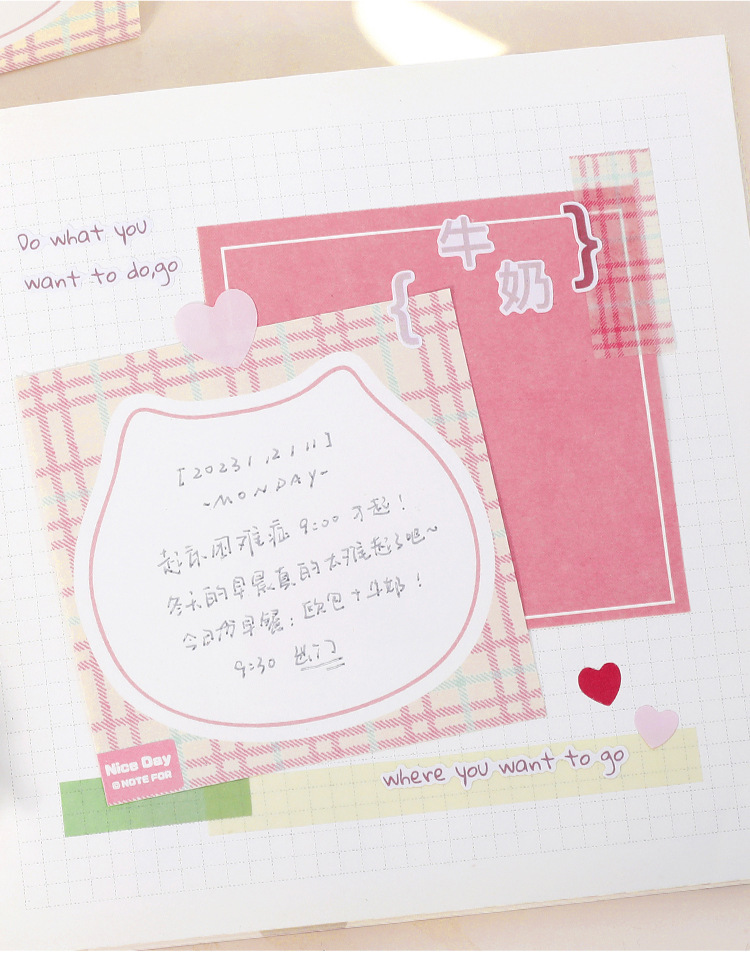 Do what you
want to do,go
{牛奶}
[2023/12/11]
-MONDAY-
起床困难症 9:00 才起！
冬天的早晨真的太难起了吧~
今日份早餐：欧包+牛奶！
9:30 出门
Nice Day
NOTE FOR
where you want to go